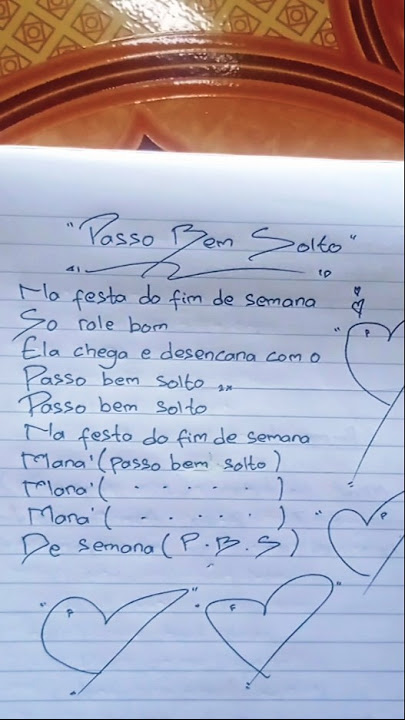 "Passo Bem Solto"
Na festa do fim de semana
So role bom
Ela chega e desencana com o
Passo bem solto
Passo bem solto
Na festo do fim de semana
Maná (passo bem solto)
Maná ( . . . . . )
Maná ( . . . . . )
De semana (P.B.S)